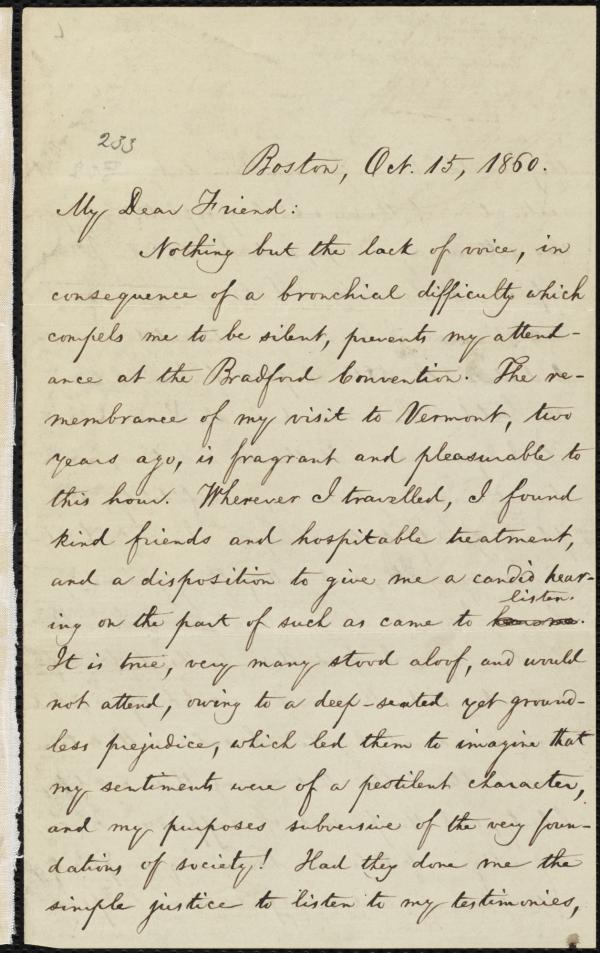 233
Boston, Oct. 15, 1860.
My Dear Friend:
Nothing but the lack of voice, in
consequence of a bronchial difficulty which
compels me to be silent, prevents my attend-
ance at the Bradford Convention. The re-
membrance of my visit to Vermont, two
years ago, is fragrant and pleasurable to
this hour. Wherever I travelled, I found
kind friends and hospitable treatment,
and a disposition to give me a candid hear-
listen.
ing on the part of such as came to
It is true, very many stood aloof, and would
not attend, owing to a deep-seated yet ground-
less prejudice, which led them to imagine that
my sentiments were of a pestilent character,
and my purposes subversive of the very foun-
dations of society! Had they done me the
simple justice to listen to my testimonies,